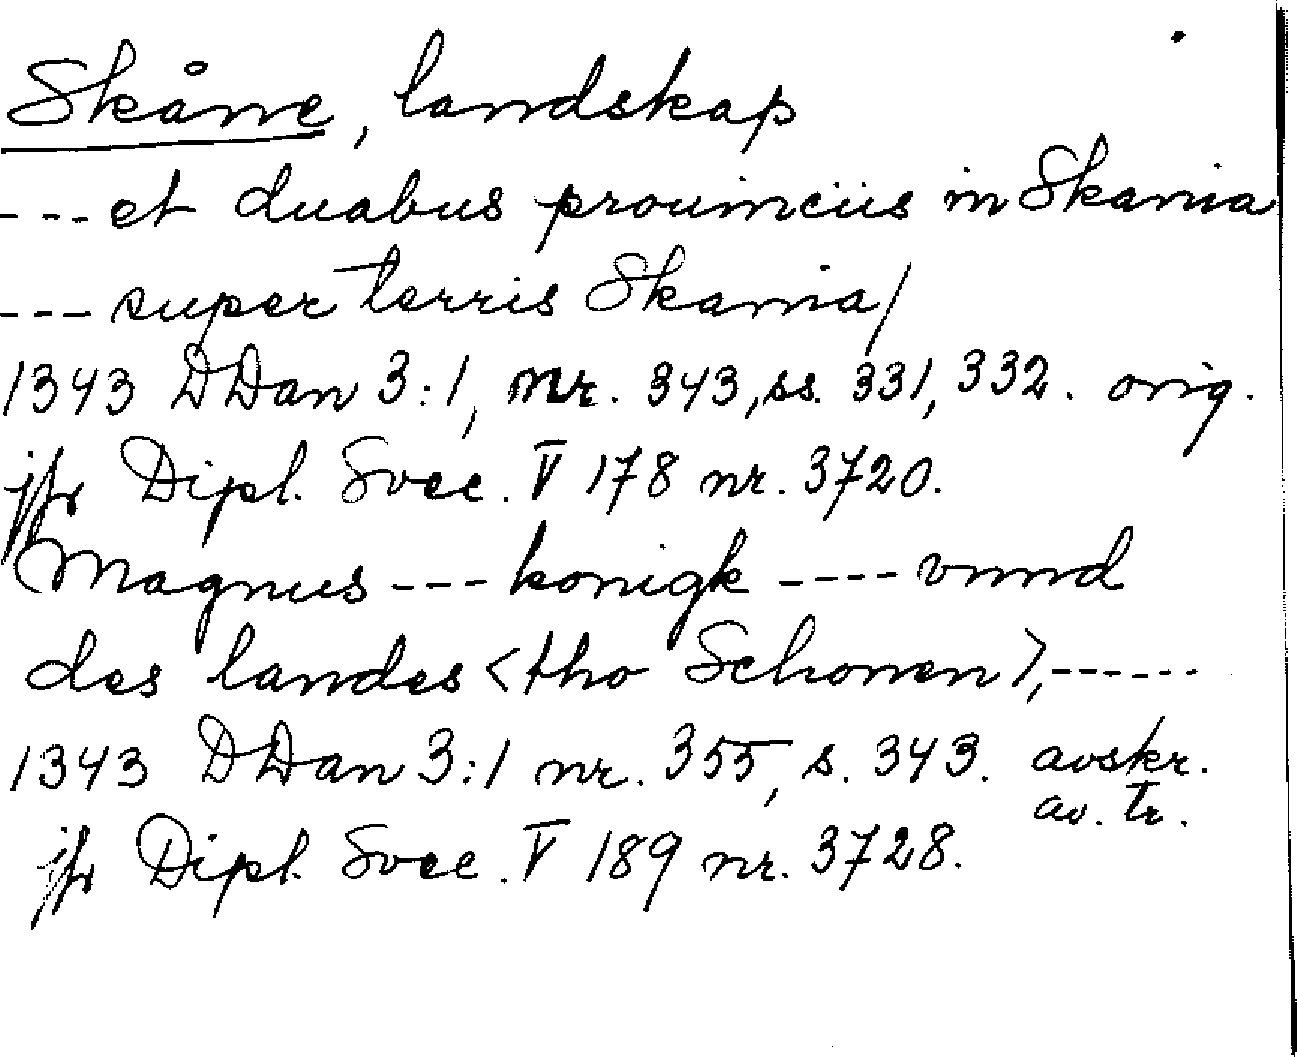 Skåne, landskap
---et duabus prouinciis in Skania
---super terris Skania/
1343 DDan 3:1, nr. 343, ss. 331, 332. orig.
jfr Dipl. Svec. V 178 nr. 3720.
Magnus---konigk----vnnd
des landes <tho Schonen>,------
1343 DDan 3:1 nr. 355, s. 343. avskr.
av. tr.
jfr Dipl. Svec. V 189 nr. 3728.